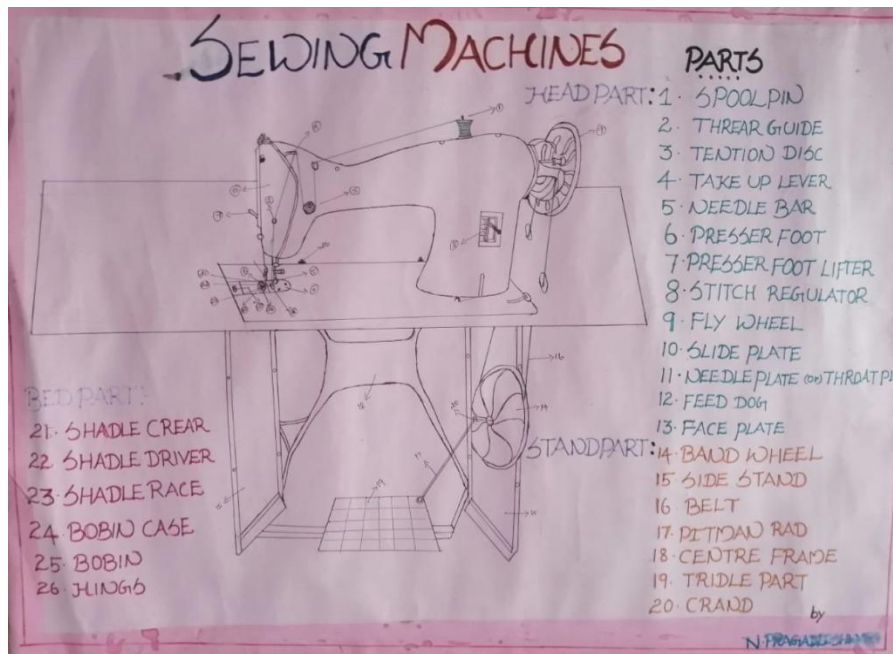 SEWING MACHINES
PARTS
HEAD PART: 1. SPOOLPIN
2. THREAR GUIDE
3. TENTION DISC
4. TAKE UP LEVER
5. NEEDLE BAR
6. PRESSER FOOT
7. PRESSER FOOT LIFTER
8. STITCH REGULATOR
9. FLY WHEEL
10. SLIDE PLATE
11. NEEDLE PLATE (OR) THROAT PL
12. FEED DOG
13. FACE PLATE
STAND PART: 14. BAND WHEEL
15 SIDE STAND
16 BELT
17. PITMAN RAD
18. CENTRE FRAME
19. TRIDLE PART
20. CRAND
BED PART:
21. SHADLE CREAR
22 SHADLE DRIVER
23. SHADLE RACE
24. BOBIN CASE
25. BOBIN
26. HINGS
by